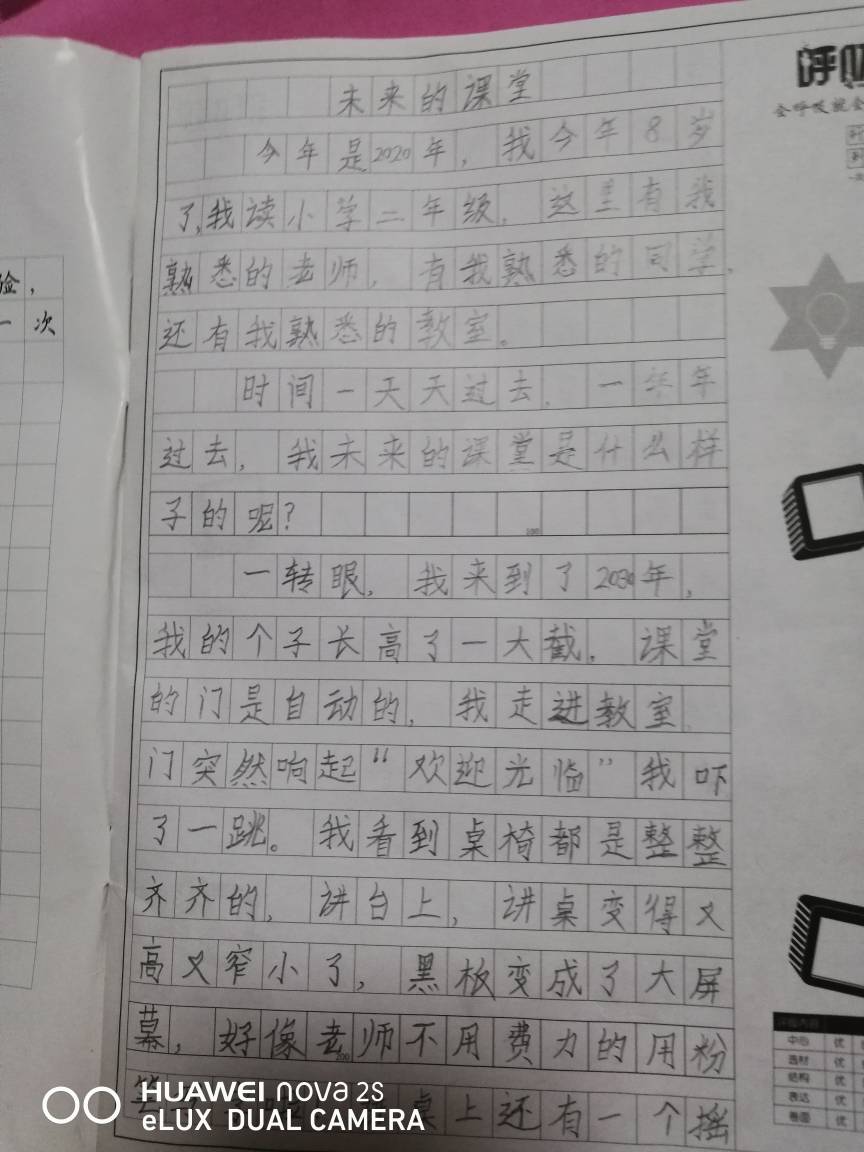 未来的课堂
今年是2020年，我今年8岁
了,我读小学二年级，这里有我
熟悉的老师，有我熟悉的同学，
还有我熟悉的教室。
时间一天天过去，一年年
过去，我未来的课堂是什么样
子的呢？
一转眼，我来到了2030年，
我的个子长高了一大截，课堂
的门是自动的，我走进教室
门突然响起“欢迎光临”我吓
了一跳。我看到桌椅都是整整
齐齐的，讲台上，讲桌变得又
高又窄小了，黑板变成了大屏
幕，好像老师不用费力的用粉
桌上还有一个摇
验，
一次
呼
会呼吸就会
中心 优
选材 优
结构 优
表达 优
卷面 优
100
200
HUAWEI nova 2S
eLUX DUAL CAMERA